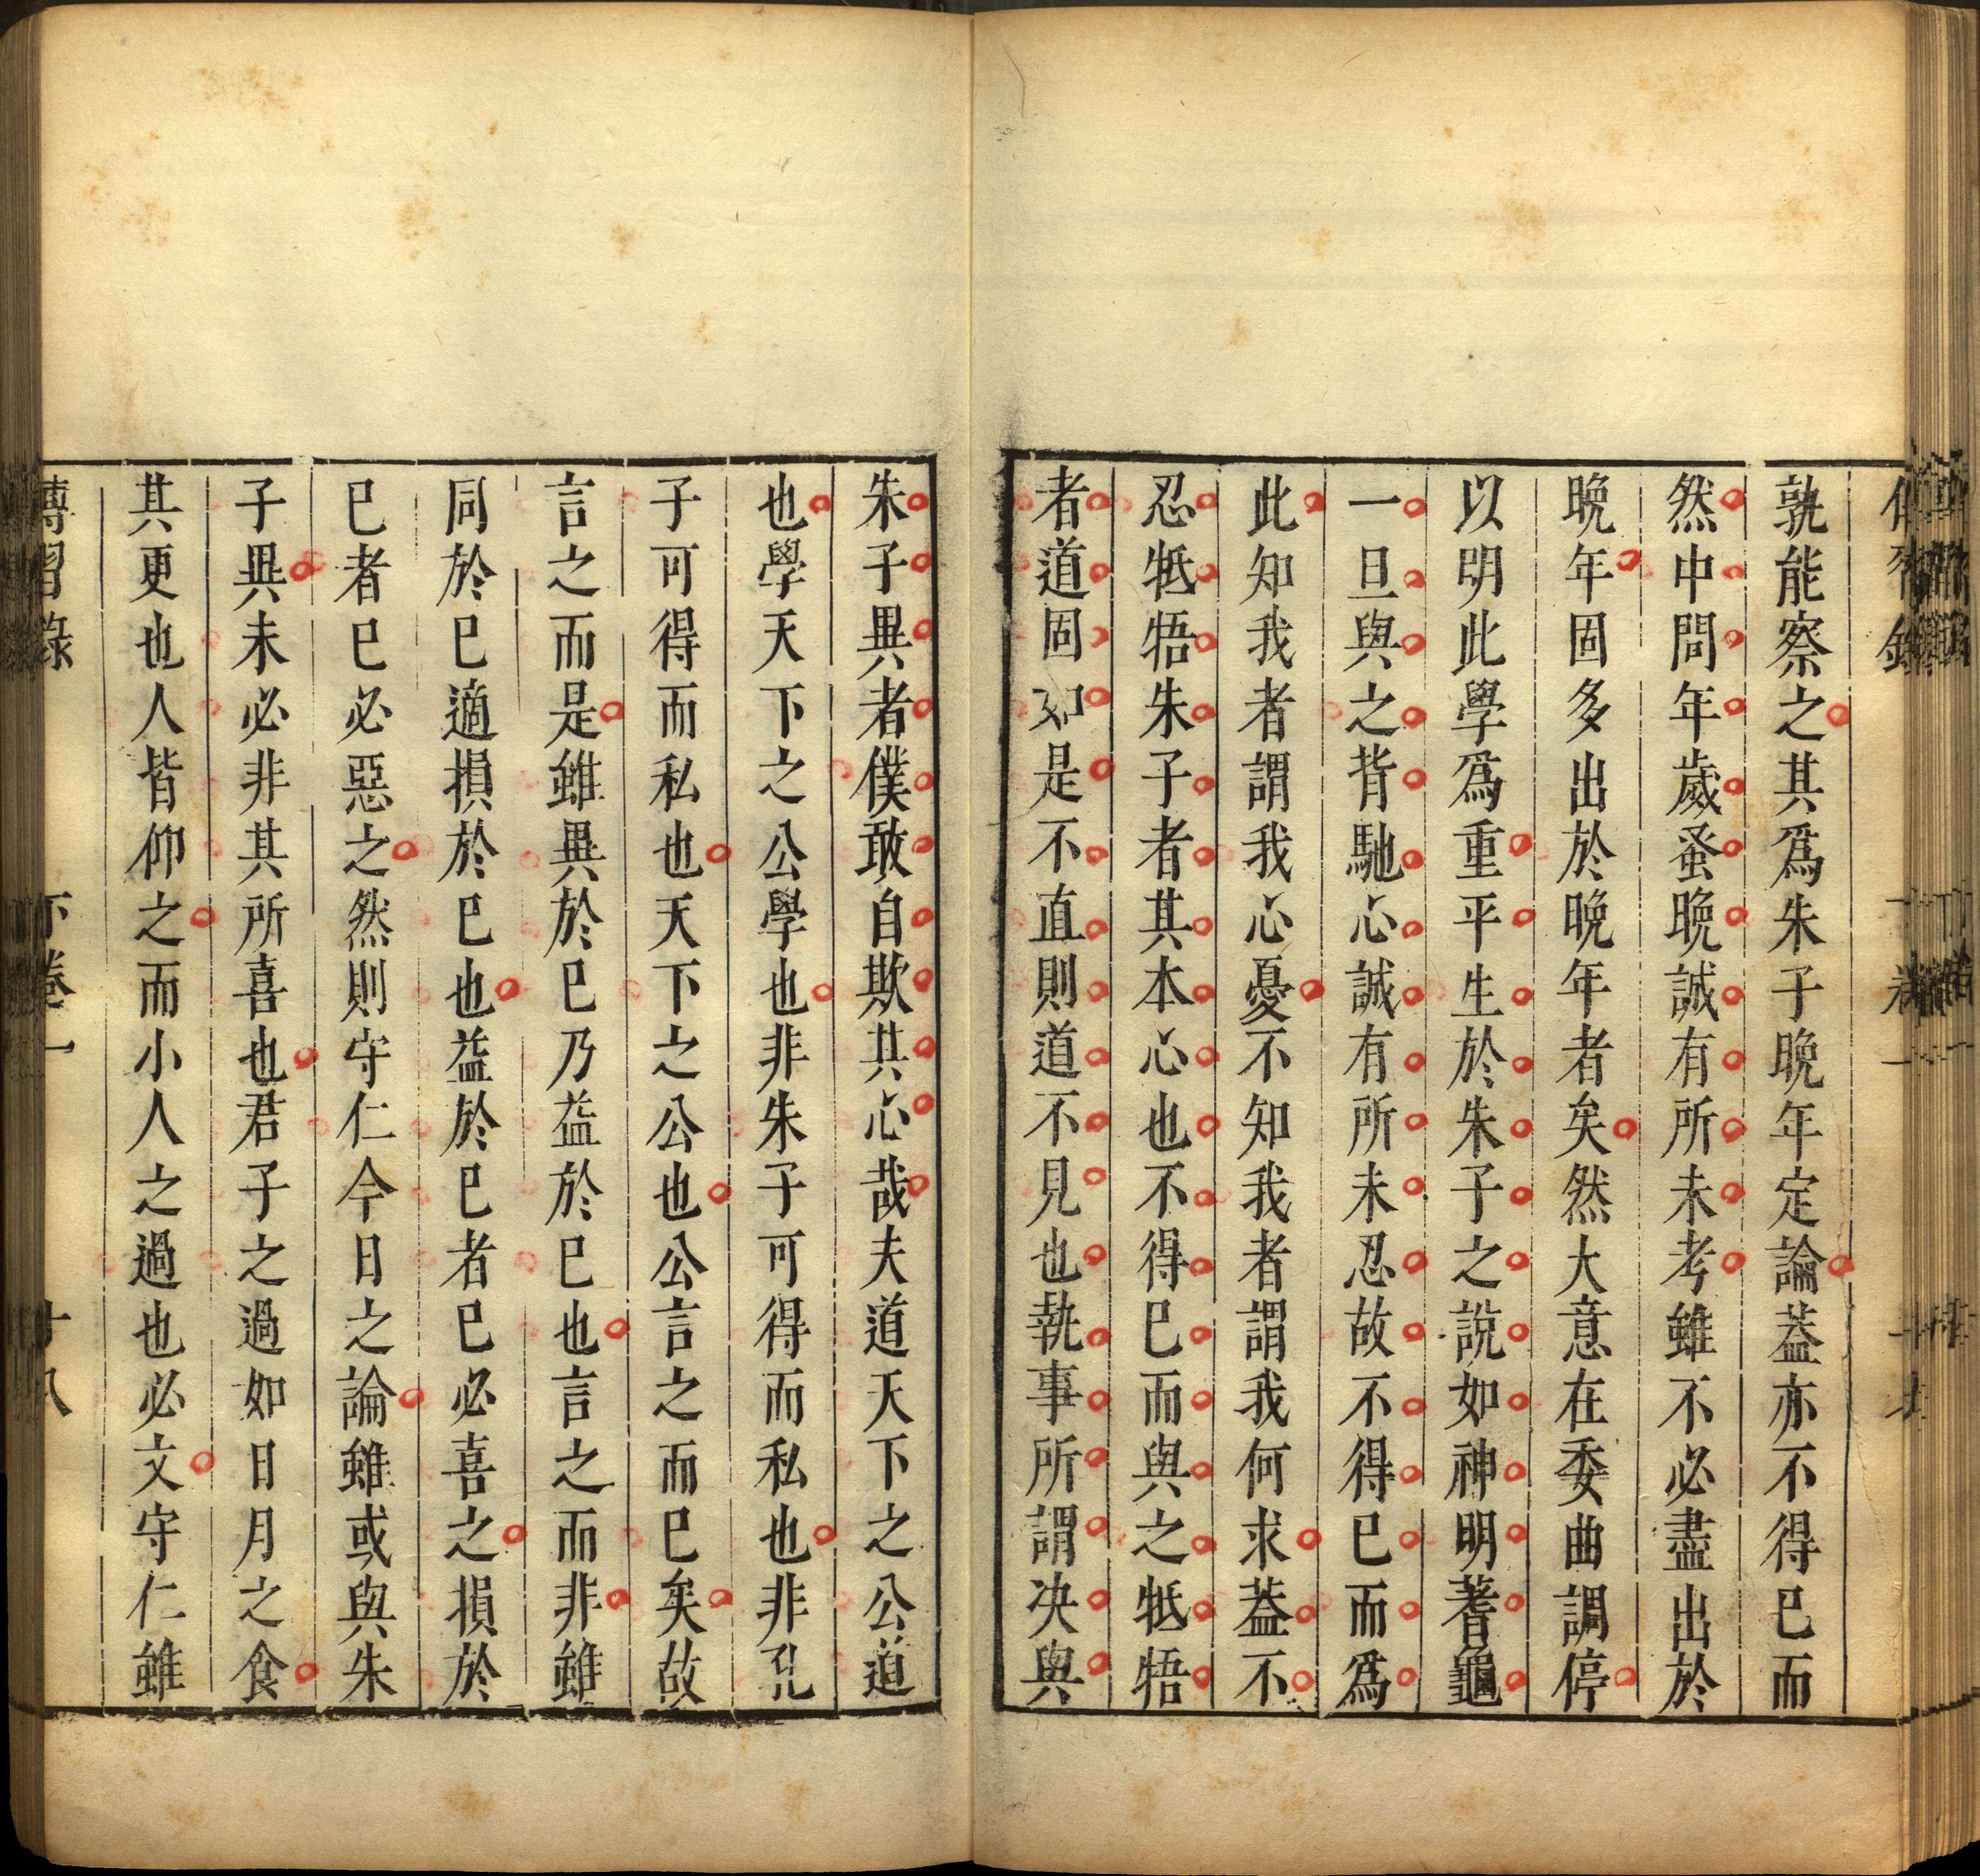 孰能察之其爲朱子晚年定論葢亦不得已而
然中間年歲蚤晚誠有所未考雖不必盡出於
晚年固多出於晚年者矣然大意在委曲調停
以明此學爲重平生於朱子之說如神明蓍龜
一旦與之背馳心誠有所未忍故不得已而爲
此知我者謂我心憂不知我者謂我何求葢不
忍牴牾朱子者其本心也不得已而與之牴牾
者道固如是不直則道不見也執事所謂决與
朱子異者僕敢自欺其心哉夫道天下之公道
也學天下之公學也非朱子可得而私也非孔
子可得而私也天下之公也公言之而已矣故
言之而是雖異於已乃益於已也言之而非雖
同於已適損於已也益於已者已必喜之損於
已者已必惡之然則守仁今日之論雖或與朱
子異未必非其所喜也君子之過如日月之食
其更也人皆仰之而小人之過也必文守仁雖
傳習錄 下卷一 十八